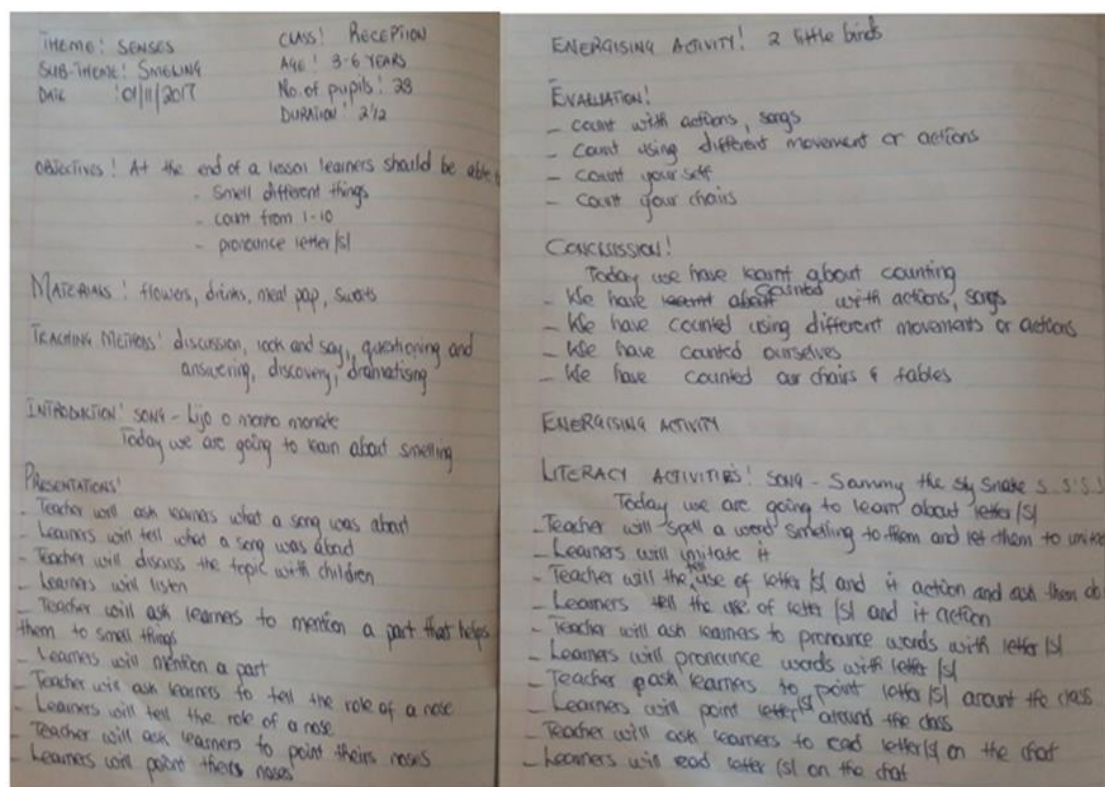 THEME: SENSES
SUB-THEME: SMELLING
DATE : 01/11/2017
CLASS: RECEPTION
AGE: 3-6 YEARS
No. of pupils: 28
DURATION: 2½
OBJECTIVES: At the end of a lesson learners should be able
- Smell different things
- count from 1-10
- pronounce letter /s/
MATERIALS: flowers, drinks, meal pap, sweets
TEACHING METHODS: discussion, look and say, questioning and
answering, discovery, dramatising
INTRODUCTION: SONG - Lijo o monno monate
Today we are going to learn about smelling
PRESENTATIONS:
- Teacher will ask learners what a song was about
- Learners will tell what a song was about
- Teacher will discuss the topic with children
- Learners will listen
- Teacher will ask learners to mention a part that helps
them to smell things
- Learners will mention a part
- Teacher will ask learners to tell the role of a nose
- Learners will tell the role of a nose
- Teacher will ask learners to point theirs noses
- Learners will point theirs noses
ENERGISING ACTIVITY: 2 little birds
EVALUATION:
- Count with actions, songs
- Count using different movement or actions
- Count your self
- Count your chairs
CONCLUSSION:
Today we have learnt about counting
- We have counted with actions, songs
- We have counted using different movements or actions
- We have counted ourselves
- We have counted our chairs & tables
ENERGISING ACTIVITY
LITERACY ACTIVITIES: SONG - Sammy the sly snake S..S.S.S
Today we are going to learn about letter /s/
- Teacher will spell a word smelling to them and let them to imitate
- Learners will imitate it
- Teacher will the tell use of letter /s/ and it action and ask them do
- Learners tell the use of letter /s/ and it action
- Teacher will ask learners to pronounce words with letter /s/
- Learners will pronounce words with letter /s/
- Teacher ask learners to point letter /s/ around the class
- Learners will point letter /s/ around the class
- Teacher will ask learners to read letter /s/ on the chat
- Learners will read letter /s/ on the chat